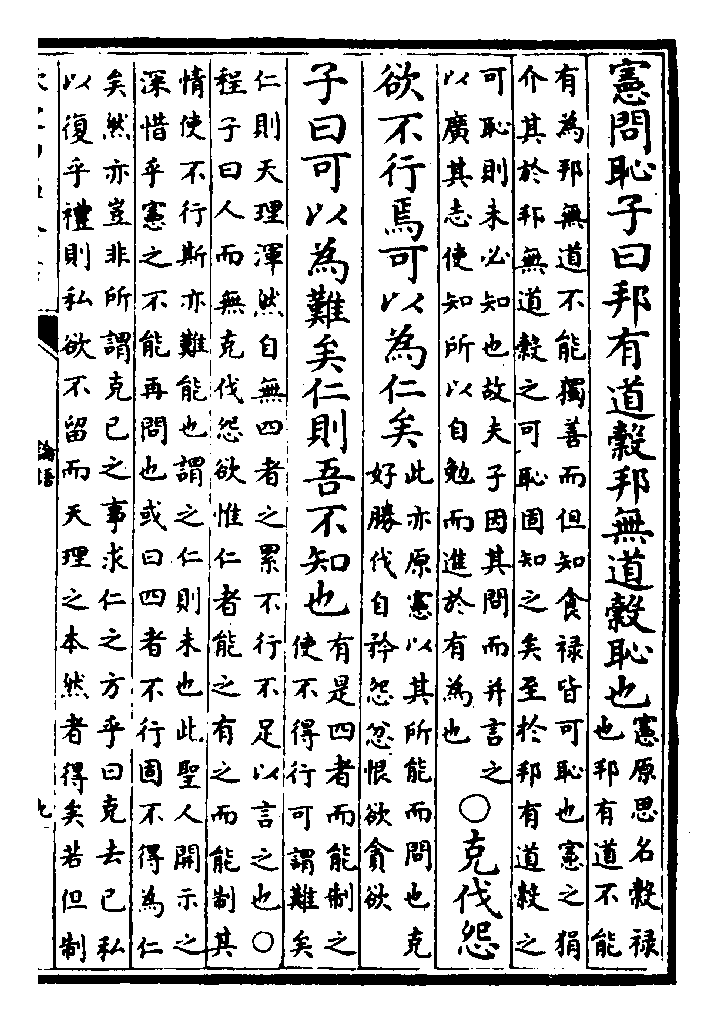 憲問恥子曰邦有道穀邦無道穀恥也
憲原思名穀祿
也邦有道不能
有為邦無道不能獨善而但知食祿皆可恥也憲之狷
介其於邦無道穀之可恥固知之矣至於邦有道穀之
可恥則未必知也故夫子因其問而并言之
以廣其志使知所以自勉而進於有為也
○克伐怨
欲不行焉可以為仁矣
此亦原憲以其所能而問也克
好勝伐自矜怨忿恨欲貪欲
子曰可以為難矣仁則吾不知也
有是四者而能制之
使不得行可謂難矣
仁則天理渾然自無四者之累不行不足以言之也○
程子曰人而無克伐怨欲惟仁者能之有之而能制其
情使不行斯亦難能也謂之仁則未也此聖人開示之
深惜乎憲之不能再問也或曰四者不行固不得為仁
矣然亦豈非所謂克己之事求仁之方乎曰克去己私
以復乎禮則私欲不留而天理之本然者得矣若但制
論語
九